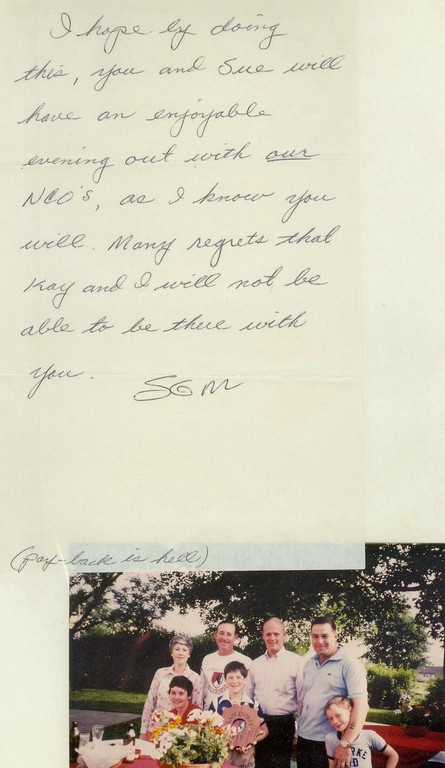 I hope by doing
this, you and Sue will
have an enjoyable
evening out with our
NCO'S, as I know you
will. Many regrets that
Kay and I will not be
able to be there with
you.
SGM
(pay-back is hell)